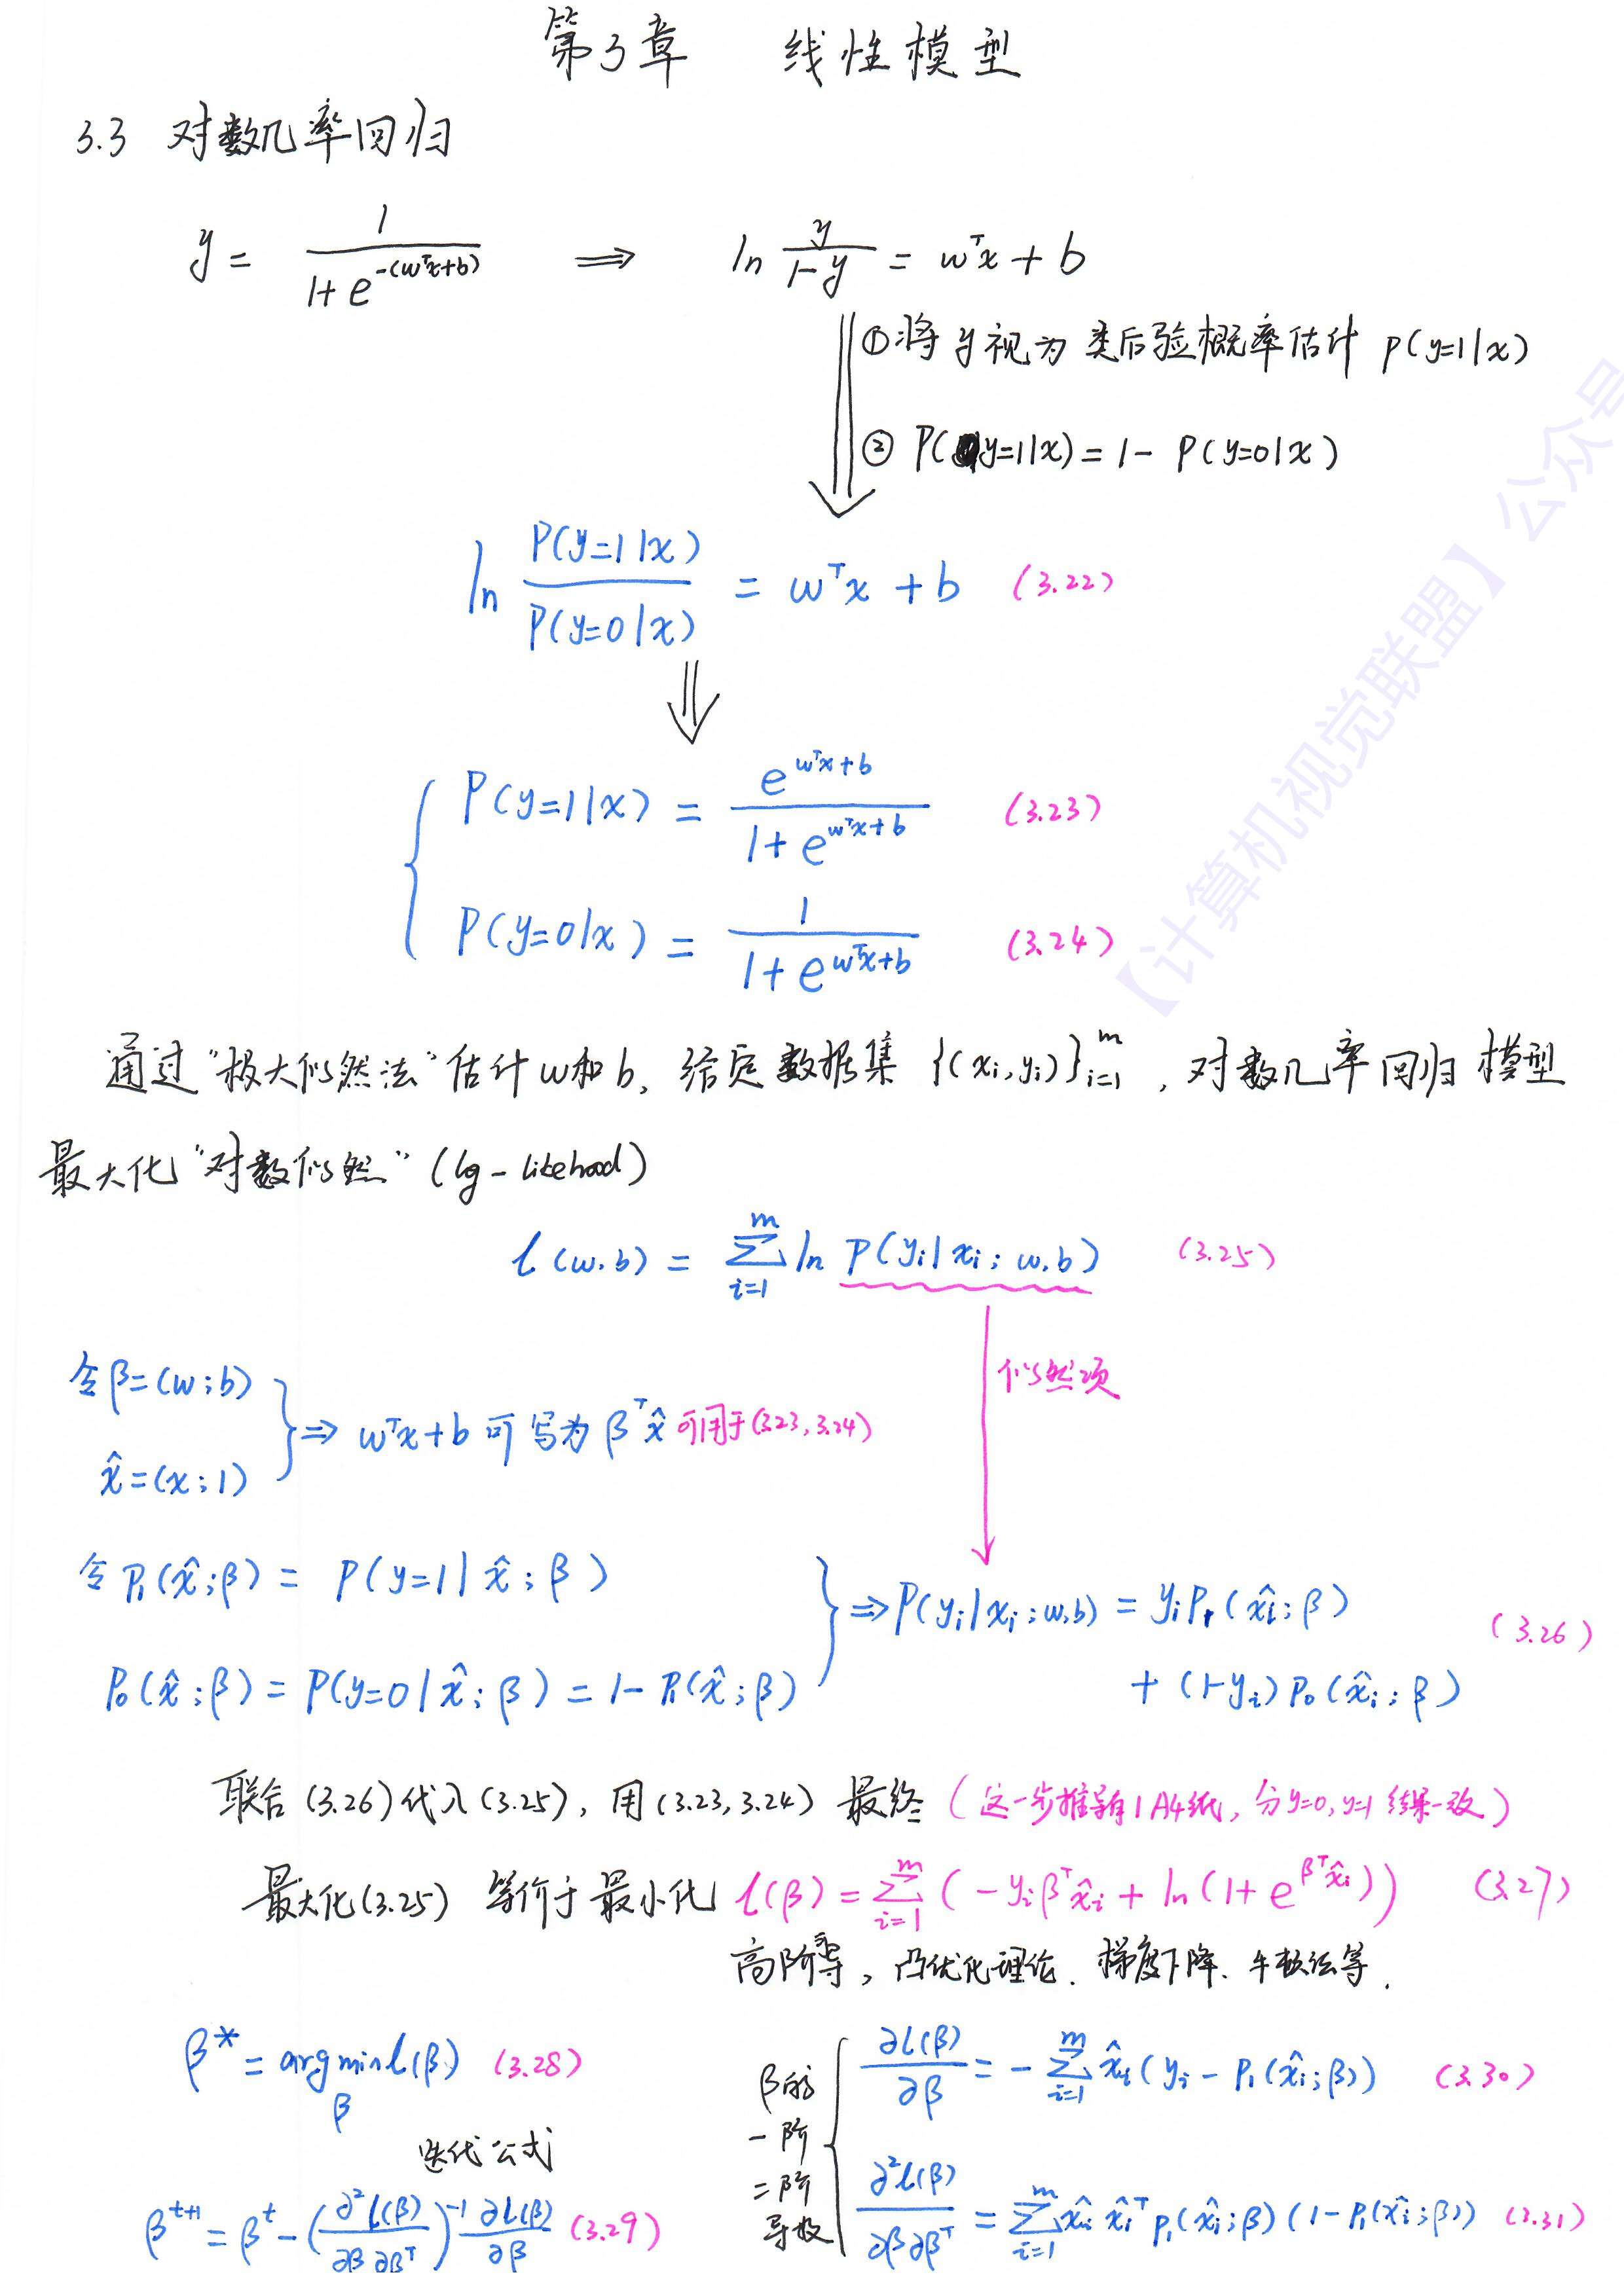 第3章 线性模型
3.3 对数几率回归
y = 1 / (1 + e^{-(wᵀx+b)}) ⟹ ln y/(1-y) = wᵀx + b
①将y视为类后验概率估计 P(y=1|x)
② P(y=1|x) = 1 - P(y=0|x)
ln P(y=1|x) / P(y=0|x) = wᵀx + b (3.22)
P(y=1|x) = e^{wᵀx+b} / (1 + e^{wᵀx+b}) (3.23)
P(y=0|x) = 1 / (1 + e^{wᵀx+b}) (3.24)
通过"极大似然法"估计w和b, 给定数据集 {(xᵢ,yᵢ)}ᵢ₌₁ᵐ , 对数几率回归模型
最大化"对数似然" (lg-likehood)
l(w.b) = Σᵢ₌₁ᵐ ln P(yᵢ|xᵢ; w.b) (3.25)
似然项
令β=(w;b)
x̂=(x;1)
⇒ wᵀx+b 可写为 βᵀx̂ 可用于(3.23, 3.24)
令 P₁(x̂;β) = P(y=1|x̂;β)
P₀(x̂;β) = P(y=0|x̂;β) = 1-P₁(x̂;β)
⇒ P(yᵢ|xᵢ;w.b) = yᵢP₁(x̂ᵢ;β)
+ (1-yᵢ)P₀(x̂ᵢ;β) (3.26)
联合 (3.26)代入(3.25), 用(3.23, 3.24) 最终 (这一步推导有1A4纸, 分y=0, y=1 结果一致)
最大化(3.25) 等价于最小化 l(β) = Σᵢ₌₁ᵐ (-yᵢβᵀx̂ᵢ + ln(1+e^{βᵀx̂ᵢ})) (3.27)
高阶导, 凸优化理论. 梯度下降. 牛顿法等.
β* = arg min l(β) (3.28)
β
迭代公式
β^{t+1} = β^t - (∂²l(β)/∂β∂βᵀ)⁻¹ ∂l(β)/∂β (3.29)
β的
一阶
二阶
导数
∂l(β)/∂β = -Σᵢ₌₁ᵐ x̂ᵢ(yᵢ - P₁(x̂ᵢ;β)) (3.30)
∂²l(β)/∂β∂βᵀ = Σᵢ₌₁ᵐ x̂ᵢ x̂ᵢᵀ P₁(x̂ᵢ;β)(1-P₁(x̂ᵢ;β)) (3.31)
【计算机视觉联盟】公众号